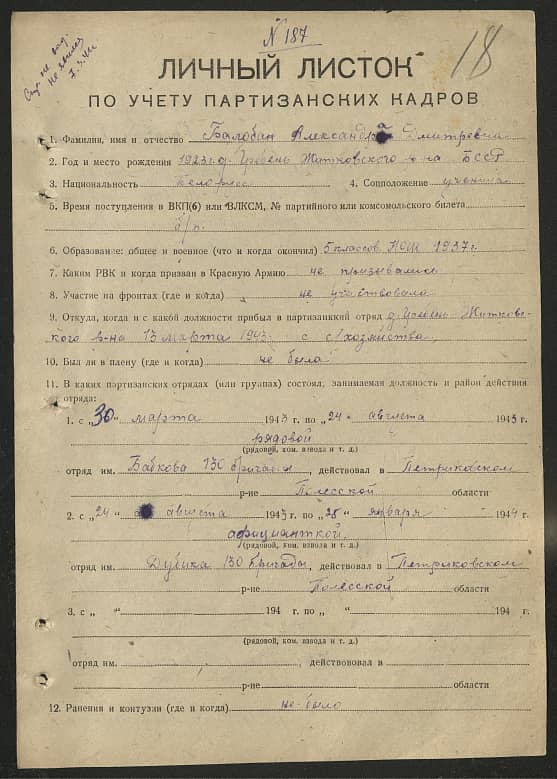 N 187
18
не явился
7.3.44
ЛИЧНЫЙ ЛИСТОК
ПО УЧЕТУ ПАРТИЗАНСКИХ КАДРОВ
1. Фамилия, имя и отчество Балобан Александра Дмитревна
2. Год и место рождения 1923 г. д. Житковского р-на БССР
3. Национальность Белорус 4. Соцположение ученица
5. Время поступления в ВКП(б) или ВЛКСМ, № партийного или комсомольского билета
б/п.
6. Образование: общее и военное (что и когда окончил) 5 классов НСШ 1937 г.
7. Каким РВК и когда призван в Красную Армию не призывалась
8. Участие на фронтах (где и когда) не участвовала
9. Откуда, когда и с какой должности прибыл в партизанский отряд д. Житков-
ского р-на 13 марта 1943 с с/хозяйства
10. Был ли в плену (где и когда) не была
11. В каких партизанских отрядах (или группах) состоял, занимаемая должность и район действия
отряда:
1. с „30“ марта 1943 г. по „24“ августа 1943 г.
рядовой
(рядовой, ком. взвода и т. д.)
отряд им. Бабкова 130 бригады, действовал в Петриковском
р-не Полесской области
2. с „24“ августа 1943 г. по „28“ января 1944 г.
официанткой
(рядовой, ком. взвода и т. д.)
отряд им. Дубика 130 бригады, действовал в Петриковском
р-не Полесской области
3. с „ “ 194 г. по „ “ 194 г.
(рядовой, ком. взвода и т. д.)
отряд им. , действовал в
р-не области
12. Ранения и контузии (где и когда) не было